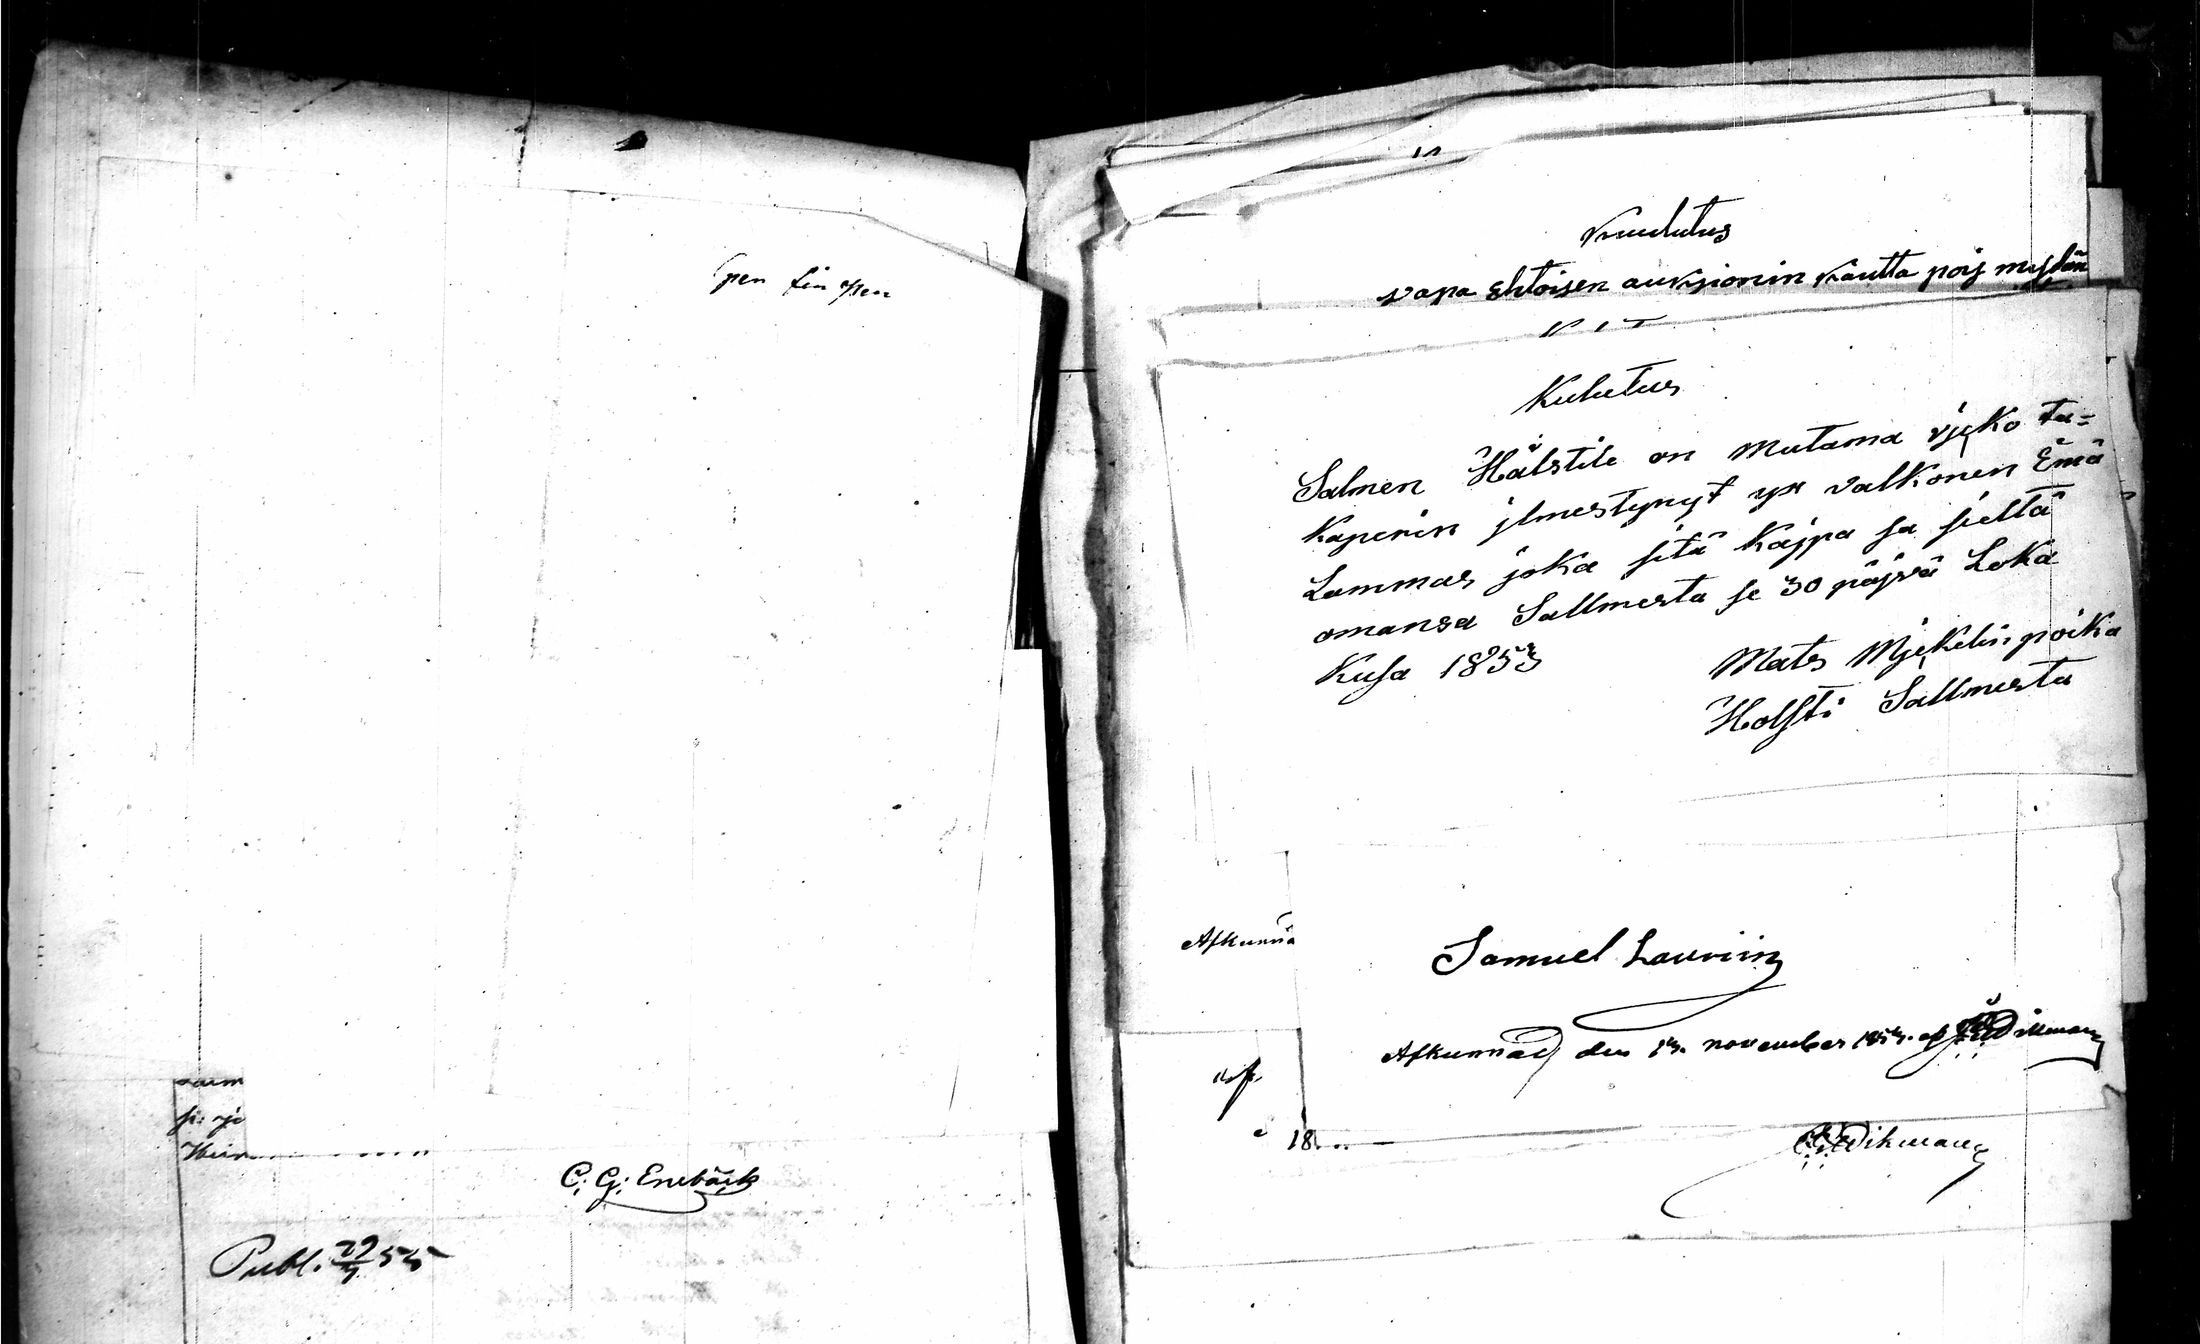 Kuulutus
vapa ehtoisen auksionin kautta pois myödän
Kulutus
Salmen Hälstile on mutama vjeko ta=
kaperin jlmestynyt yx valkonen Emä
Lammas joka sitä kajpa sa sieltä
omansa Sallmesta se 30 päjvä Loka
kusa 1853
Mats Mjekelin poika
Holsti Sallmesta
Afkunna
Samuel Lauriin
Afkunnad den 13. november 1853. af Wikman
18
Wikman
C. G. Enebäck
Publ. 29/4 55